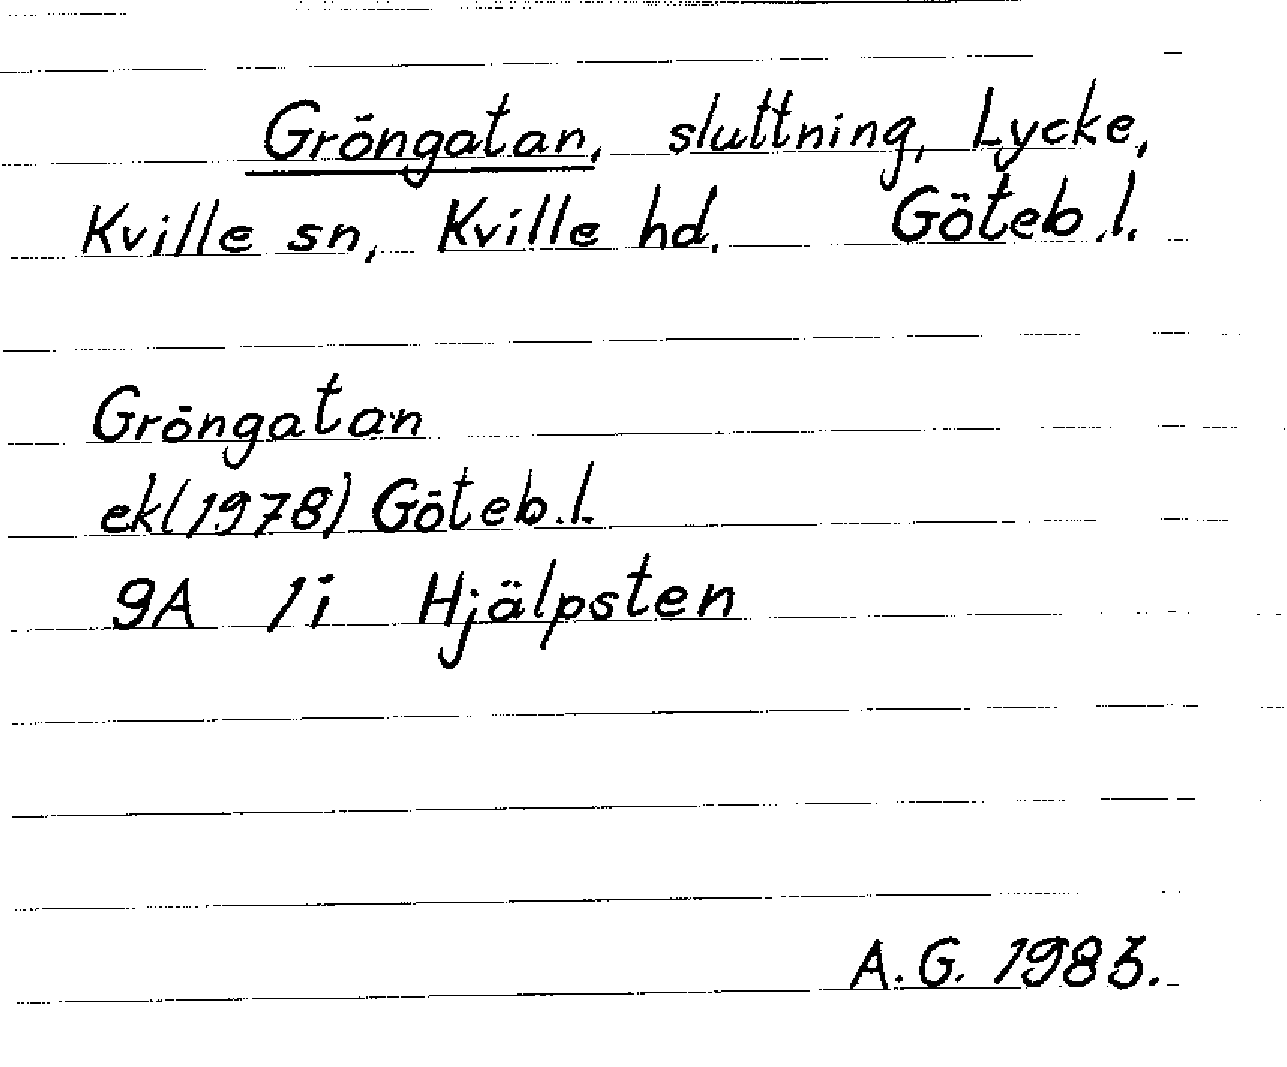 Gröngatan, sluttning, Lycke,
Kville sn, Kville hd. Göteb.l.
Gröngatan
ek(1978) Göteb.l.
9A 1i Hjälpsten
A.G. 1983.